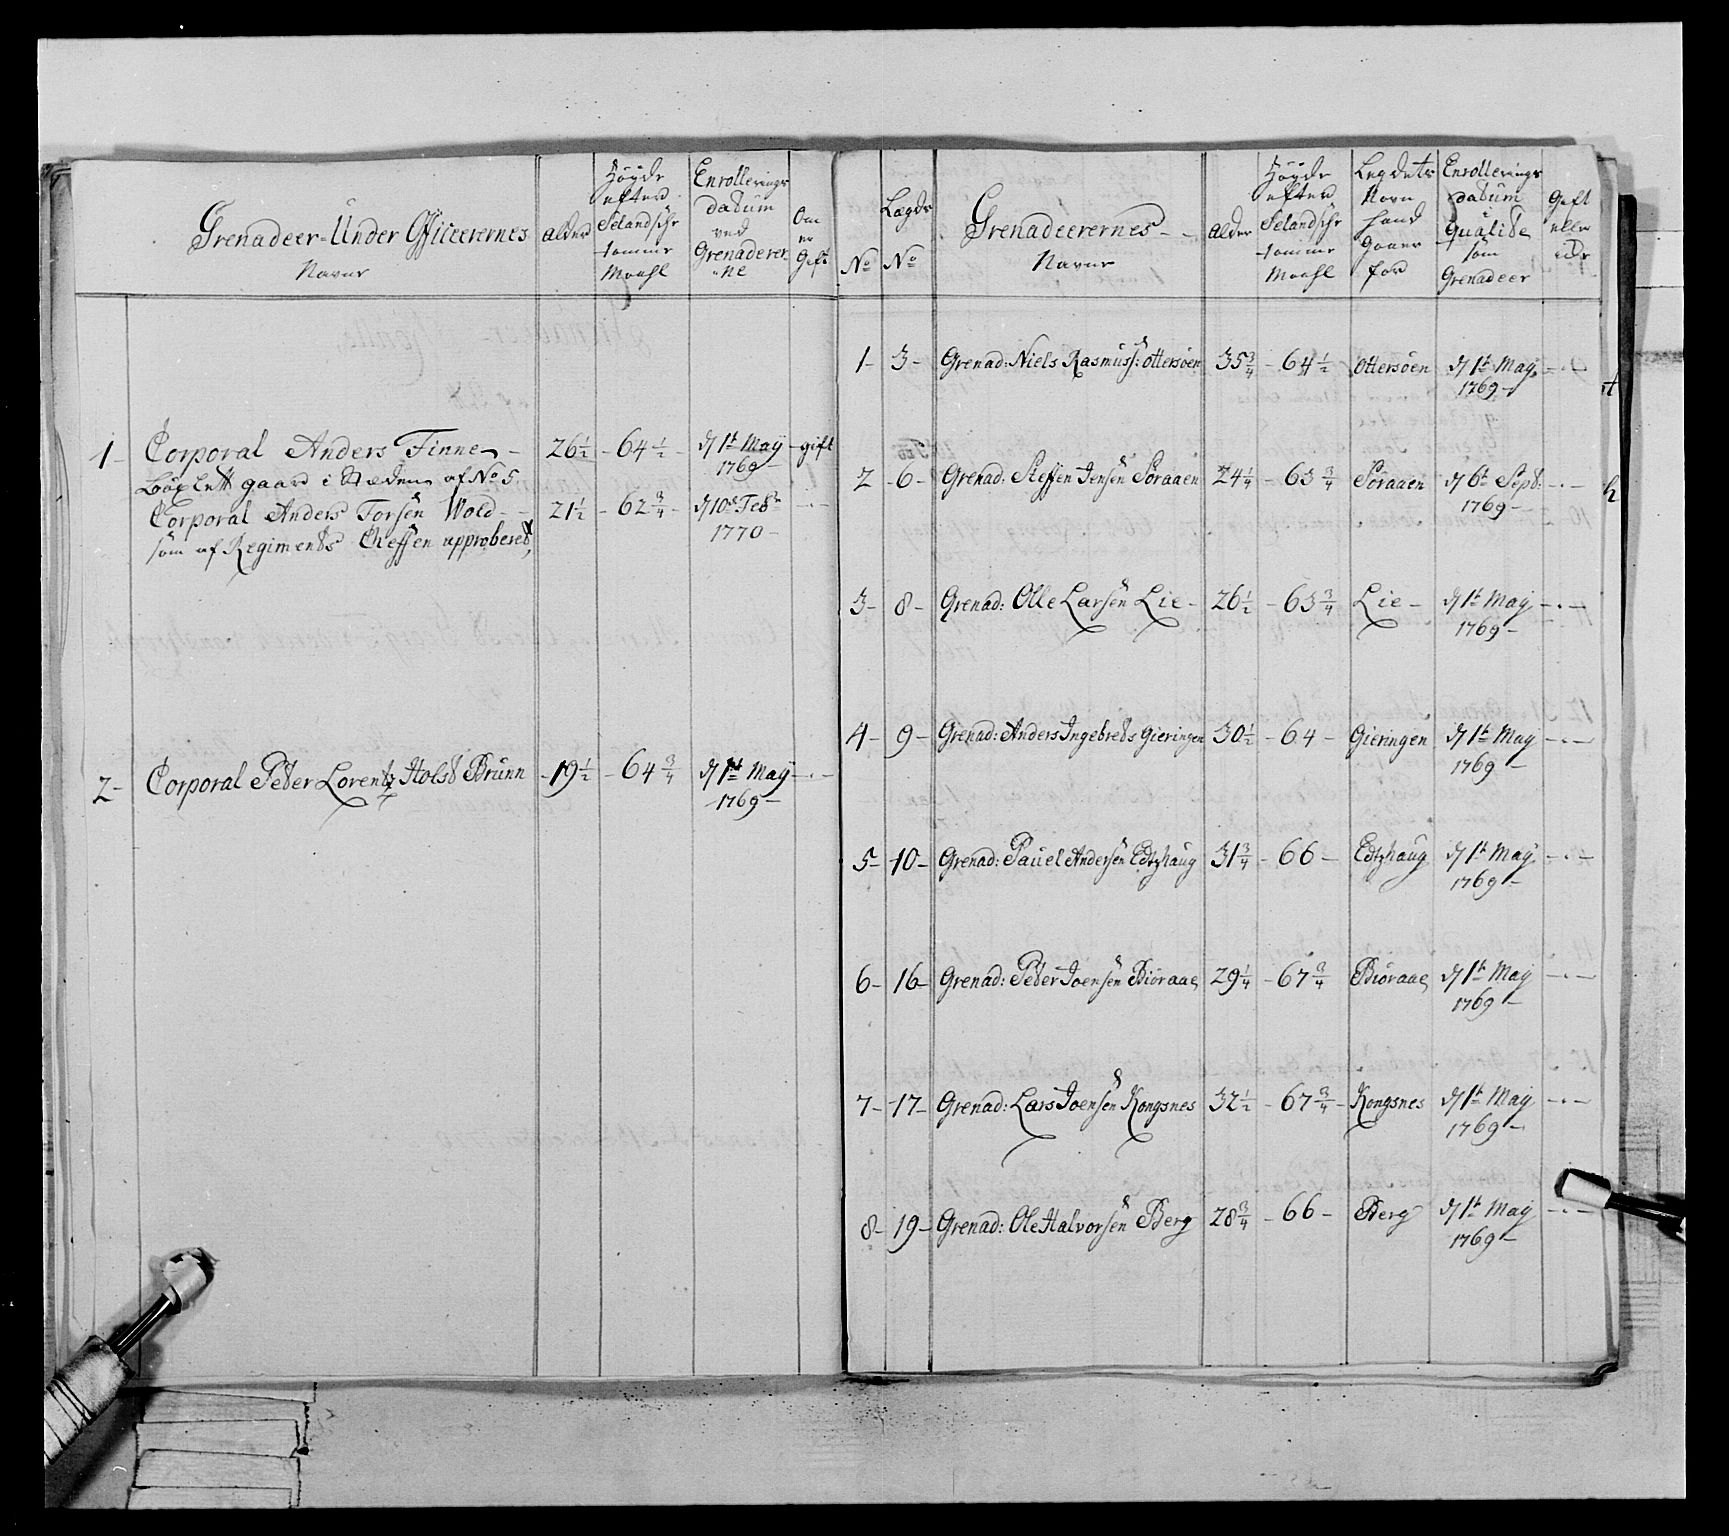 Grenadeer-Under Officerernes
Navne
alder
Høyde
efter
Selandschr
tomme
Maahl
Enrollerings
datum
ved
Grenaderer
ne
Om
er
Gift
1 Corporal Anders Finne - 26 1/2 - 64 1/2 - d 1t May - gift
1769 -
gaard i Stæden af No 5
Corporal Anders Torsen Wold - 21 1/2 - 62 3/4 - d 10de Febr - . -
1770 -
som af Regiments Cheffen approberet
2 - Corporal Peter Lorentz Holst Brunn - 19 1/2 - 64 3/4 d 1t May - . -
1769 -
No
Lægds
No
Grenadeerernes
Navne
alder
Høyde
efter
Selandschr
tomme
Maahl
Legdets
Navn
hand
Gaaer
for
Enrollerings
datum
i
Qualite
som
Grenadeer
Gift
eller
ei
1 - 3 - Grenad: Niels Rasmuss: Ottersøen 35 3/4 - 64 1/2 Ottersøen d 1t May - . -
1769 -
2 - 6 - Grenad: Steffen Jensen Soraaen 24 1/4 - 63 3/4 Soraaen d 6t Sept: - . -
1769 -
3 - 8 - Grenad: Olle Larsen Lie - 26 1/2 - 63 3/4 Lie - d 1t May - . -
1769 -
4 - 9 - Grenad: Anders Ingebrets Gieringen 30 1/2 - 64 - Gieringen d 1t May - . -
1769 -
5 - 10 - Grenad: Pauel Andersen Edtzhaug 31 3/4 - 66 - Edtzhaug d 1t May - . -
1769 -
6 - 16 - Grenad: Peder Joensen Bioraae 29 1/4 - 67 3/4 Bioraae d 1t May - . -
1769 -
7 - 17 - Grenad: Lars Joensen Kongsnes 32 1/2 - 67 3/4 - Kongsnes d 1t May - . -
1769 -
8 - 19 - Grenad: Ole Halvorsen Berg 28 3/4 - 66 - Berg d 1t May - . -
1769 -